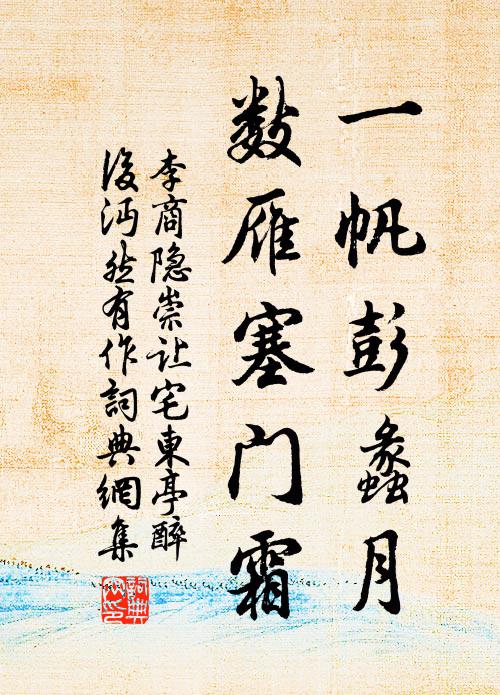 一帆彭蠡月
数雁塞门霜
李商隐崇让宅東亭醉
後沔然有作詞典網集